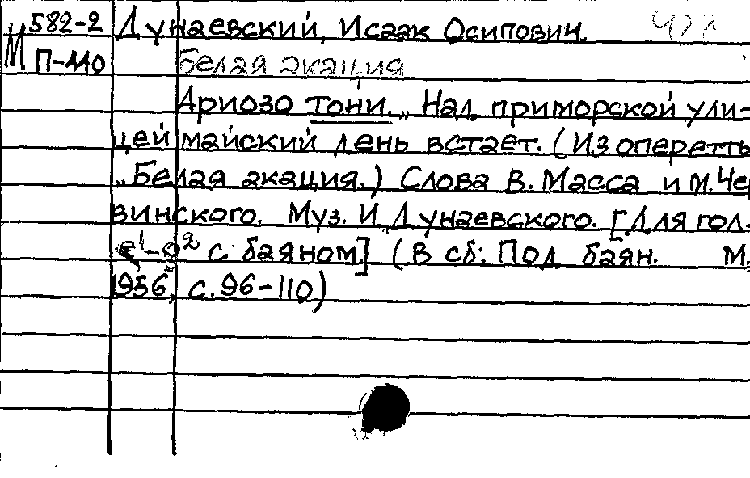 М 582-2 Дунаевский, Исаак Осипович.
П-110 Белая акация
Ариозо Тони. „Над приморской ули-
цей майский день встает. (Из оперетты
„Белая акация.) Слова В. Масса и М. Чер
винского. Муз. И. Дунаевского. [Для гол.
e¹-a² с баяном] (В сб: Под баян. М.
1956, с. 96-110)